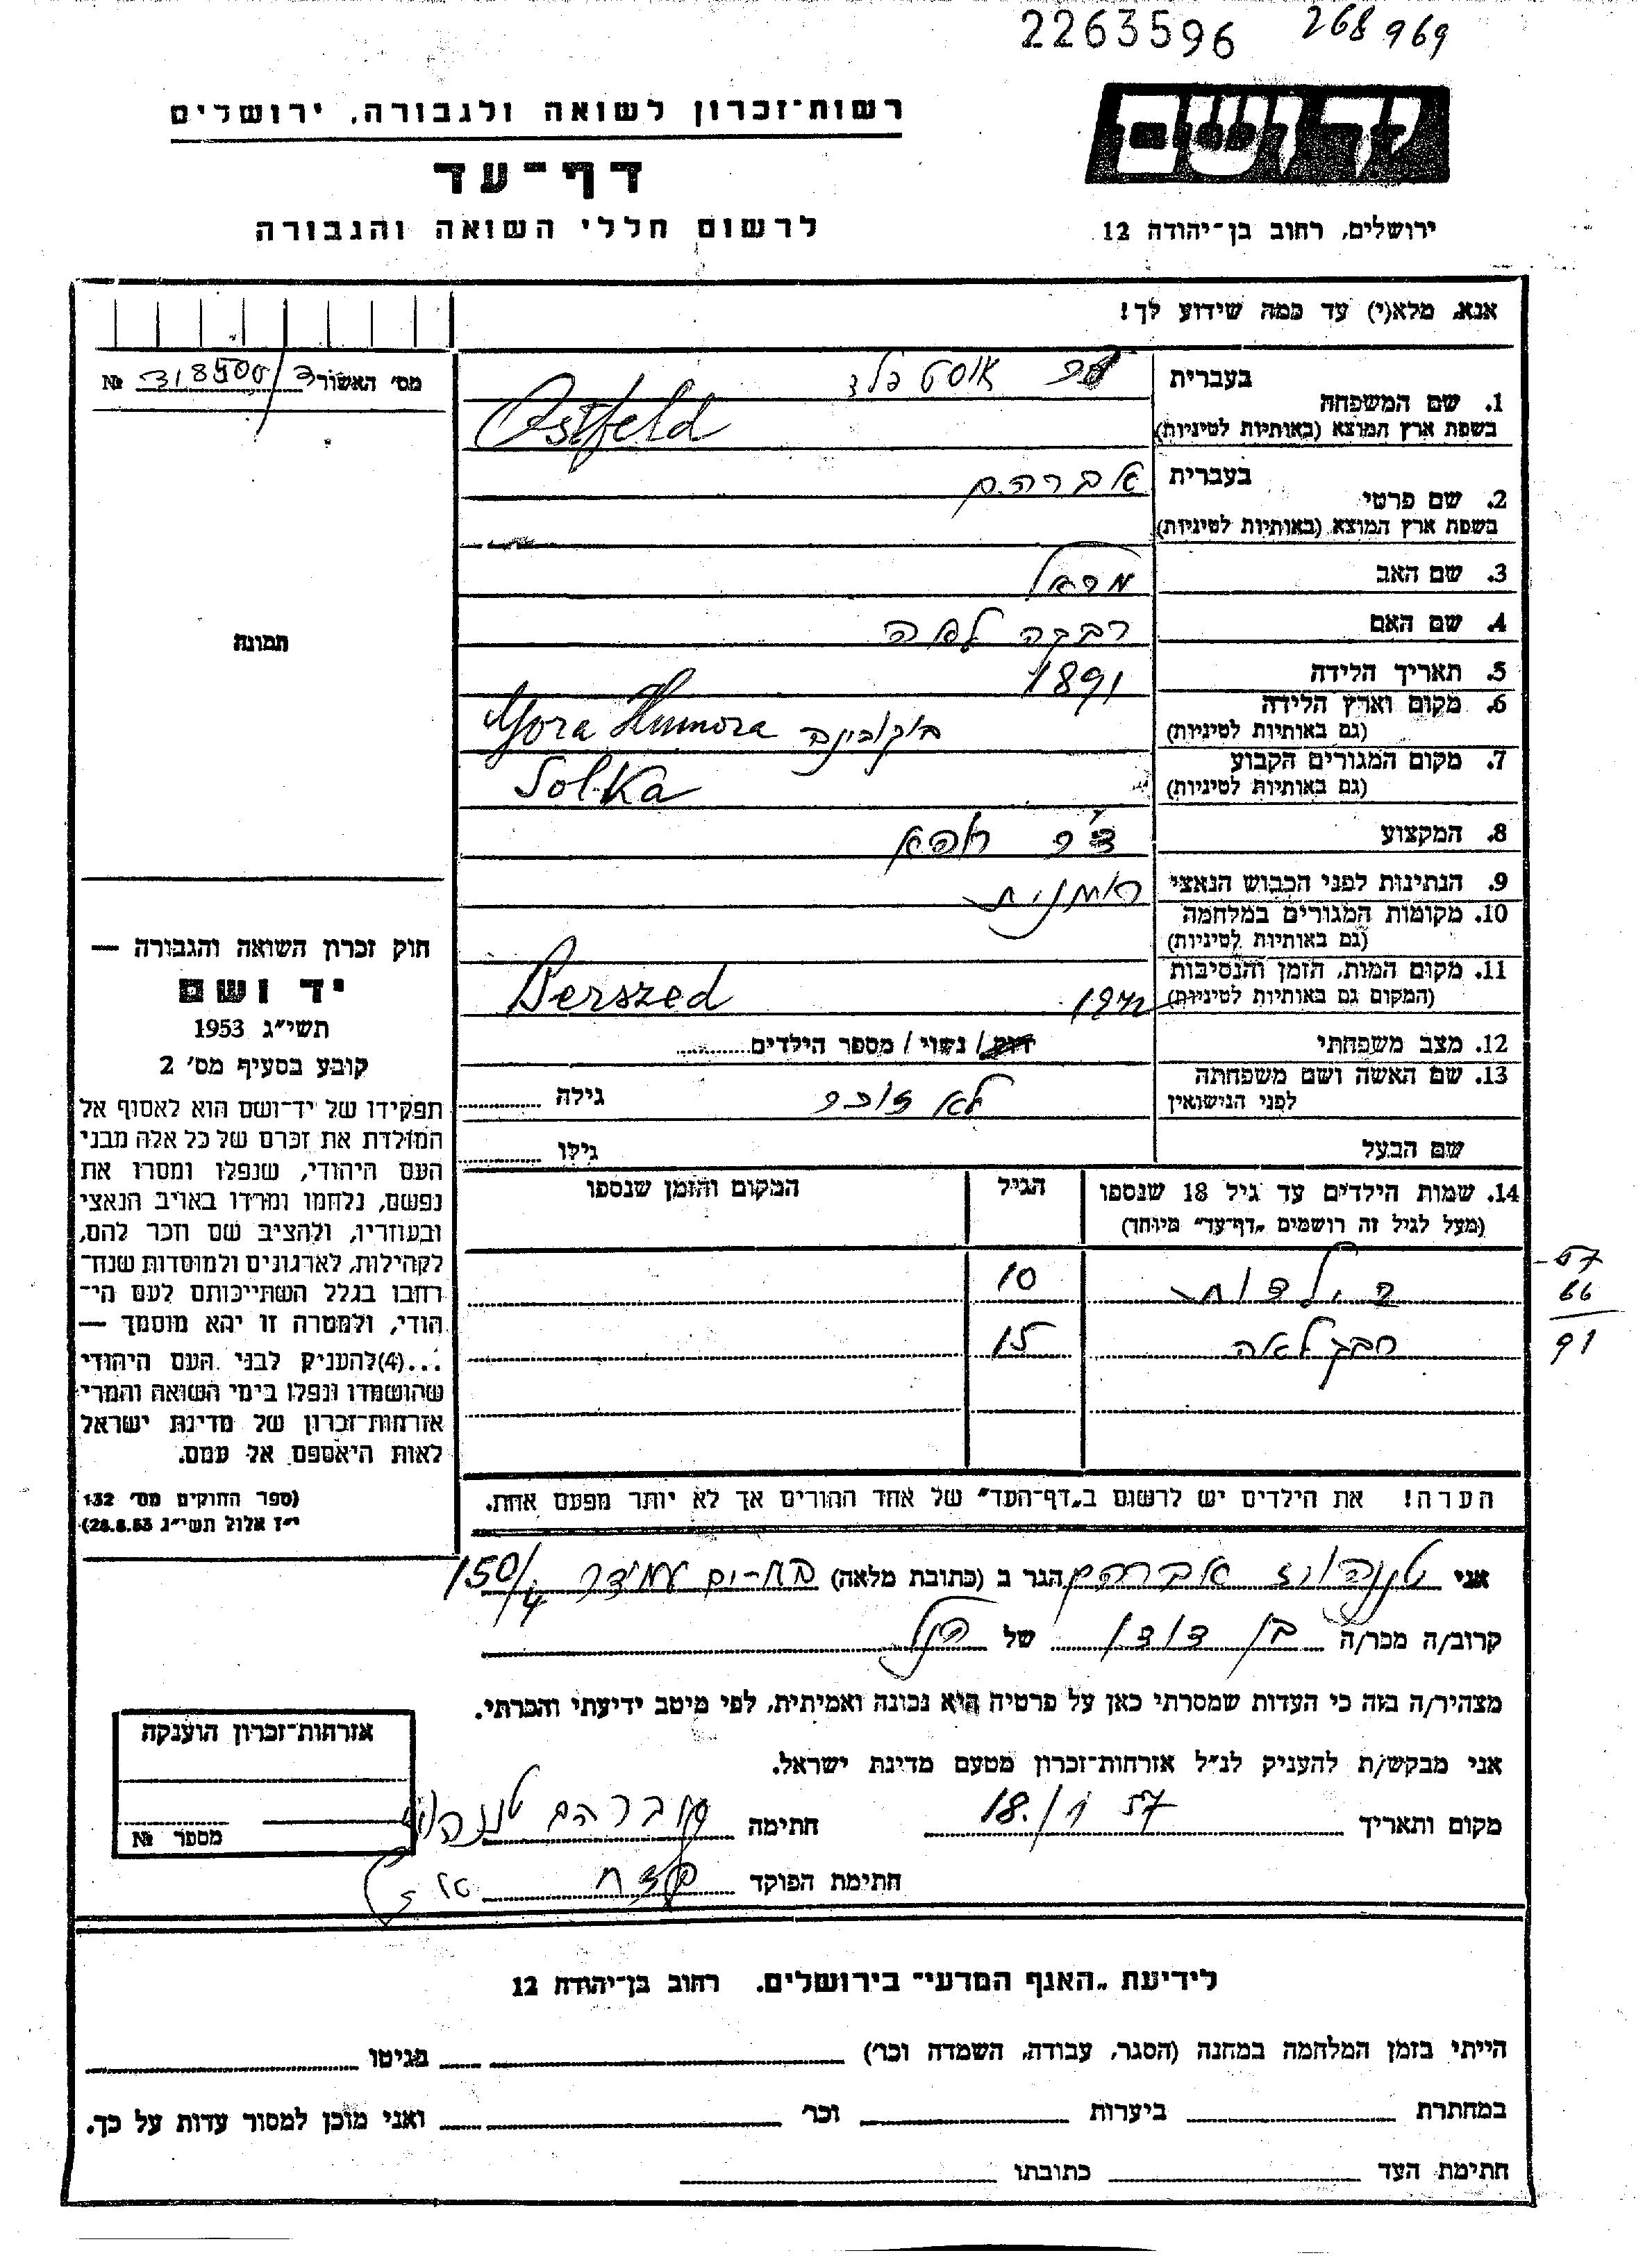 2263596 268969
רשות־זכרון לשואה ולגבורה, ירושלים
יד ושם
דף־עד
לרשום חללי השואה והגבורה
ירושלים, רחוב בן־יהודה 12
אנא, מלא(י) עד כמה שידוע לך!
מס׳ האשור
№
בעברית
אוסטפלד
1. שם המשפחה
בשפת ארץ המוצא (באותיות לטיניות)
Ostfeld
בעברית
אברהם
2. שם פרטי
בשפת ארץ המוצא (באותיות לטיניות)
3. שם האב
4. שם האם רבקה לאה
5. תאריך הלידה 1891
6. מקום וארץ הלידה
(גם באותיות לטיניות)
בוקובינה Gora Humora
7. מקום המגורים הקבוע
(גם באותיות לטיניות)
Solka
8. המקצוע ד״ר רופא
9. הנתינות לפני הכבוש הנאצי רומנית
10. מקומות המגורים במלחמה
(גם באותיות לטיניות)
11. מקום המות, הזמן והנסיבות
(המקום גם באותיות לטיניות)
1942 Berszed
12. מצב משפחתי רווק / נשוי / מספר הילדים
13. שם האשה ושם משפחתה
לפני הנישואין
לא זוכר גילה
שם הבעל גילו
14. שמות הילדים עד גיל 18 שנספו
(מעל לגיל זה רושמים „דף־עד״ מיוחד)
הגיל
המקום והזמן שנספו
10
15
57
66
91
הערה! את הילדים יש לרשום ב„דף־העד״ של אחד ההורים אך לא יותר מפעם אחת.
תמונה
חוק זכרון השואה והגבורה —
יד ושם
תשי״ג 1953
קובע בסעיף מס׳ 2
תפקידו של יד־ושם הוא לאסוף אל
המולדת את זכרם של כל אלה מבני
העם היהודי, שנפלו ומסרו את
נפשם, נלחמו ומרדו באויב הנאצי
ובעוזריו, ולהציב שם וזכר להם,
לקהילות, לארגונים ולמוסדות שנח־
רבו בגלל השתייכותם לעם הי־
הודי, ולמטרה זו יהא מוסמך —
...(4) להעניק לבני העם היהודי
שהושמדו ונפלו בימי השואה והמרי
אזרחות־זכרון של מדינת ישראל
לאות היאספם אל עמם.
(ספר החוקים מס׳ 132
י״ז אלול תשי״ג 28.8.53)
אני טננהויז אברהם הגר ב (כתובת מלאה) בת-ים עמידר 150/4
קרוב/ה מכר/ה בן דודו של הנ״ל
מצהיר/ה בזה כי העדות שמסרתי כאן על פרטיה היא נכונה ואמיתית, לפי מיטב ידיעתי והכרתי.
אני מבקש/ת להעניק לנ״ל אזרחות־זכרון מטעם מדינת ישראל.
מקום ותאריך 18/1 57 חתימה אברהם טננהויז
חתימת הפוקד
אזרחות־זכרון הוענקה
מספר №
לידיעת „האגף המדעי״ בירושלים. רחוב בן־יהודה 12
הייתי בזמן המלחמה במחנה (הסגר, עבודה, השמדה וכר׳) בגיטו
במחתרת ביערות וכר׳ ואני מוכן למסור עדות על כך.
חתימת העד כתובתו